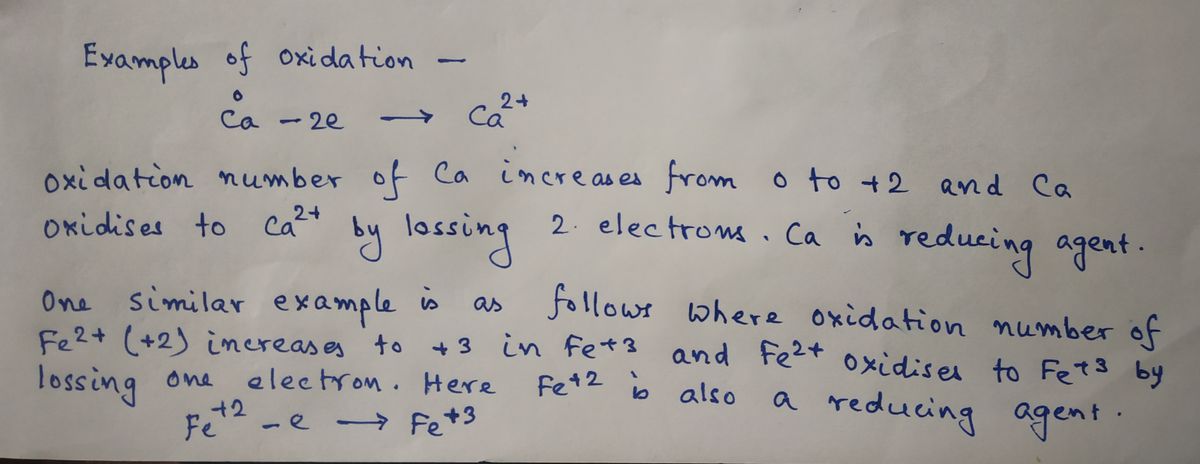 Examples of oxidation —
Ca⁰ - 2e → Ca²⁺
oxidation number of Ca increases from 0 to +2 and Ca
oxidises to Ca²⁺ by lossing 2. electrons. Ca is reducing agent.
One similar example is as follows where oxidation number of
Fe2+ (+2) increases to +3 in Fe+3 and Fe2+ oxidises to Fe+3 by
lossing one electron. Here Fe+2 is also a reducing agent.
Fe⁺² - e → Fe⁺³